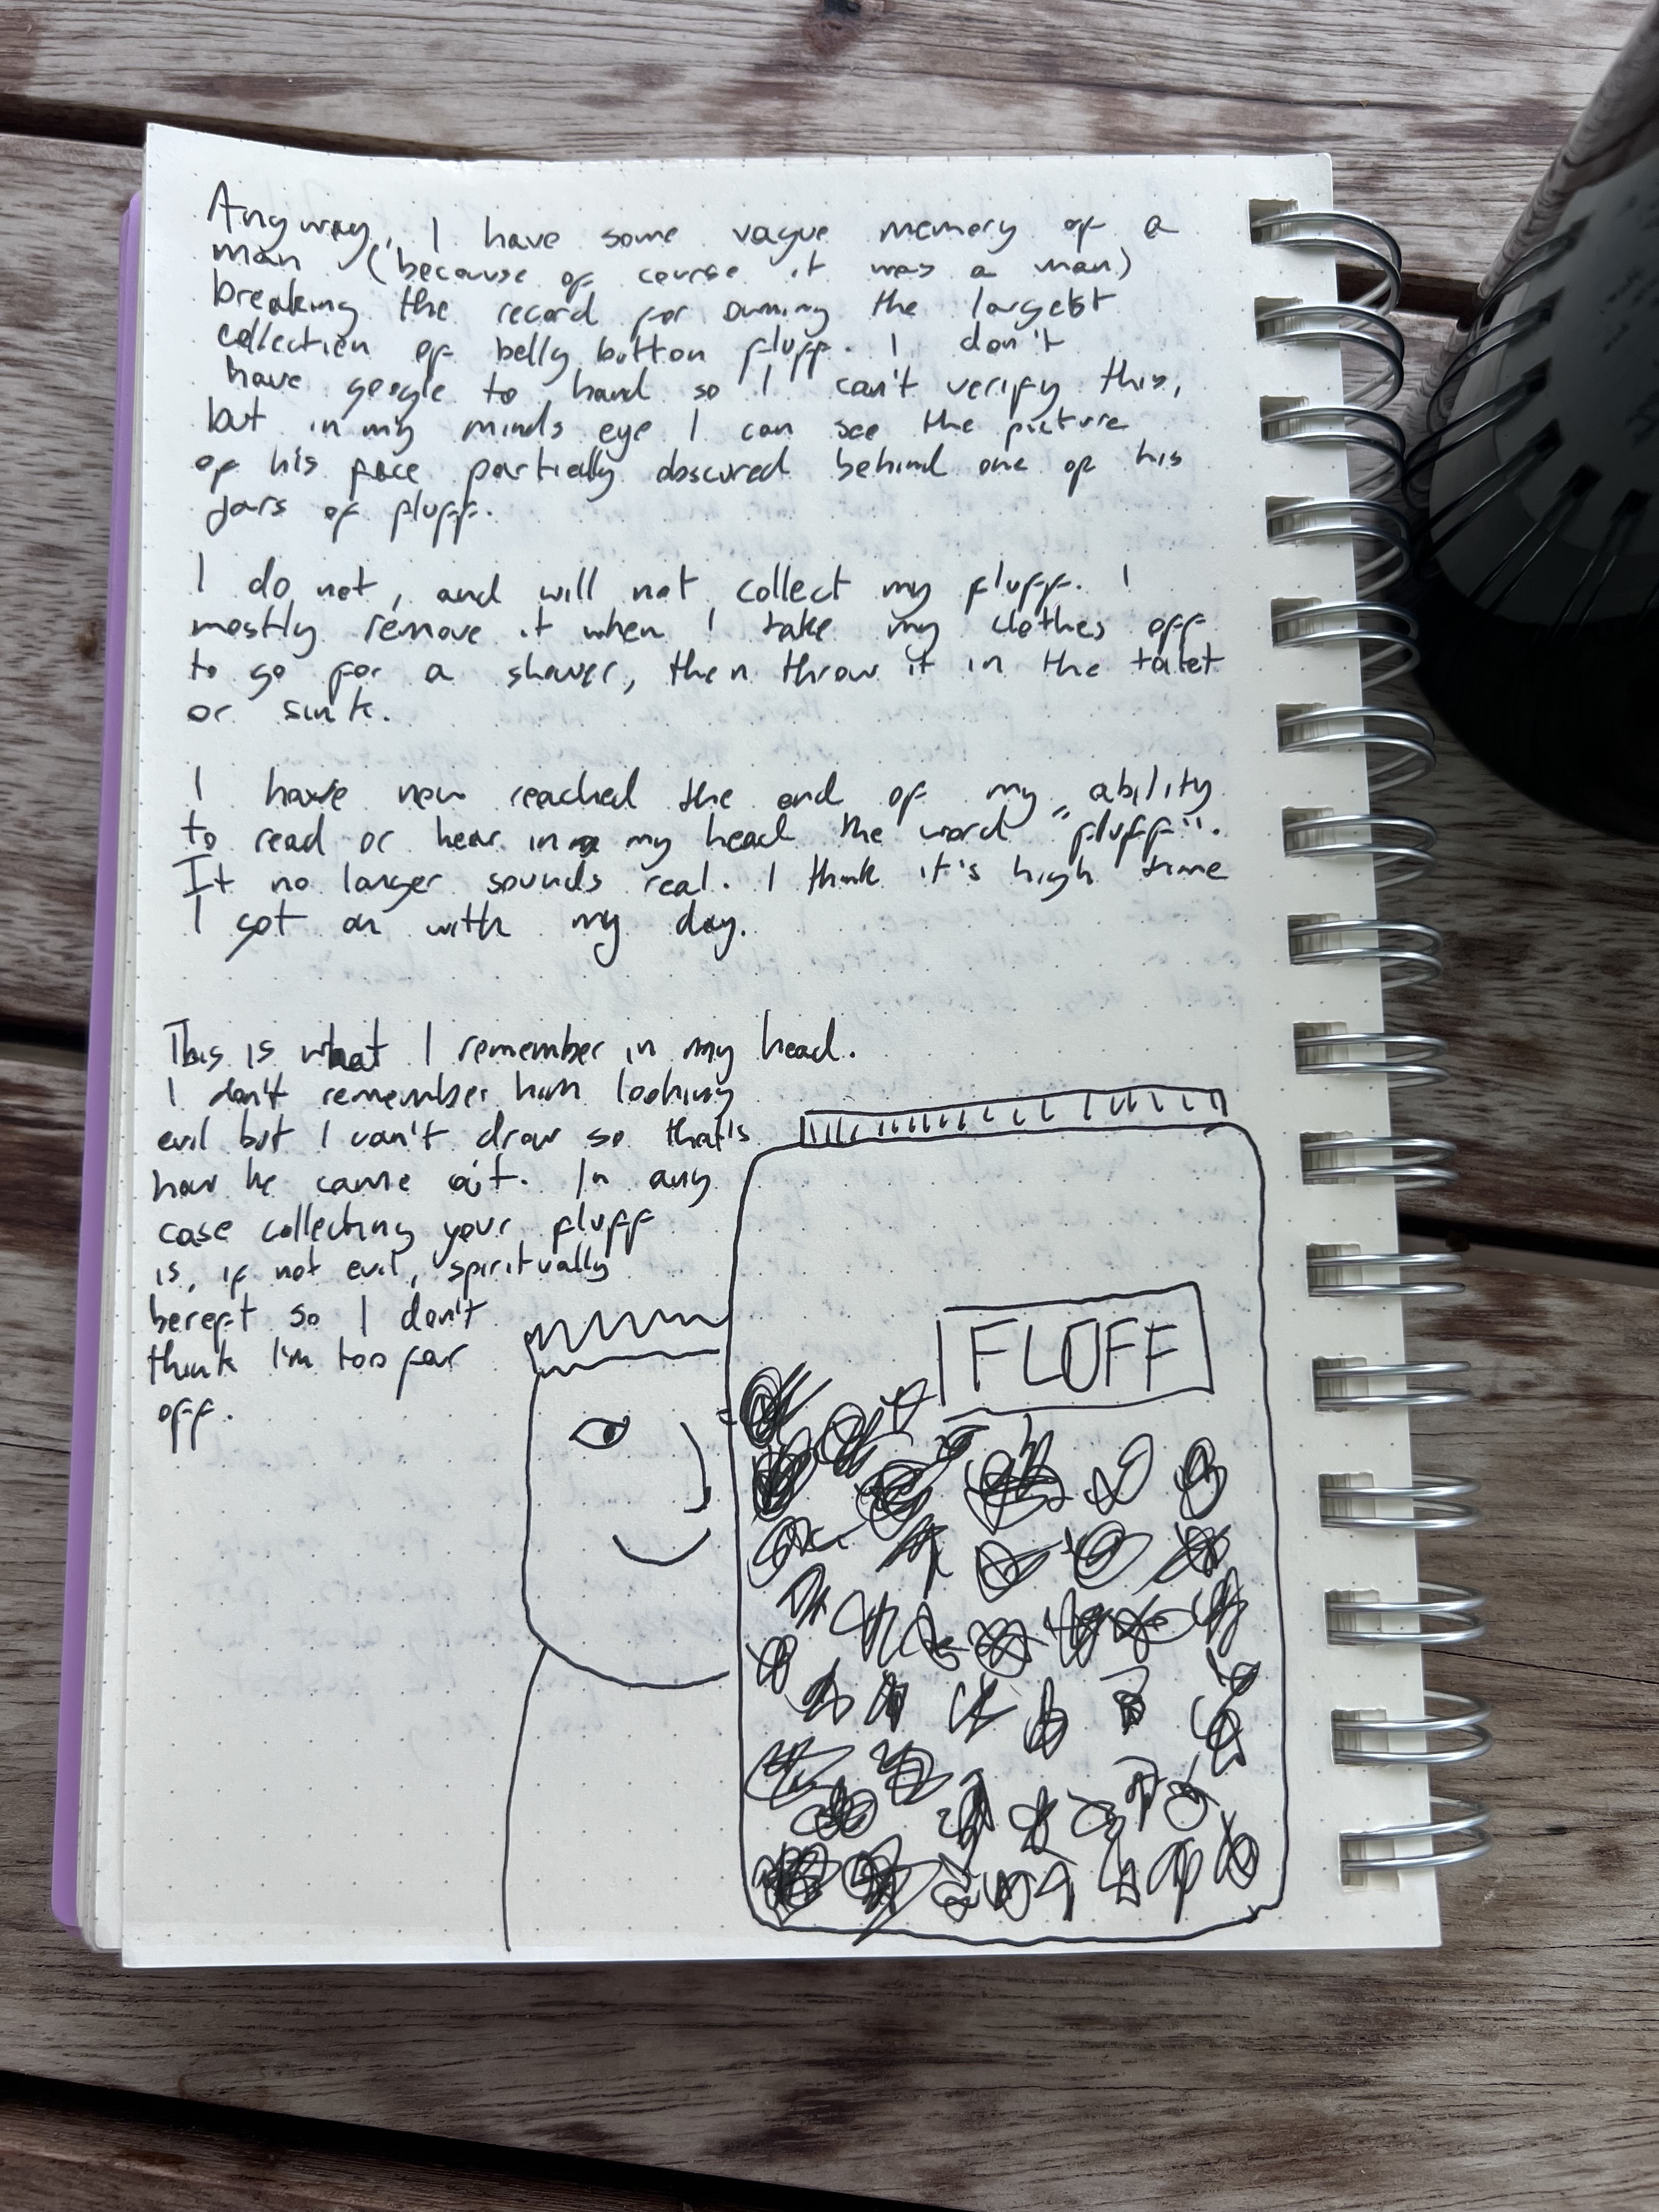 Anyway, I have some vague memory of a
man (because of course it was a man)
breaking the record for owning the largest
collection of belly button fluff. I don't
have google to hand so I can't verify this,
but in my minds eye I can see the picture
of his face partially obscured behind one of his
jars of fluff.
I do not, and will not collect my fluff. I
mostly remove it when I take my clothes off
to go for a shower, then throw it in the toilet
or sink.
I have now reached the end of my ability
to read or hear in my head the word "fluff".
It no longer sounds real. I think it's high time
I got on with my day.
This is what I remember in my head.
I don't remember him looking
evil but I can't draw so that's
how he came out. In any
case collecting your fluff
is, if not evil, spiritually
bereft so I don't
think I'm too far
off.
FLUFF